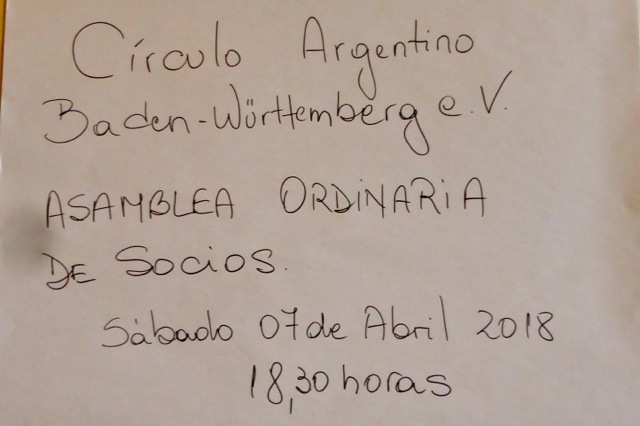 Círculo Argentino
Baden-Württemberg e.V.
ASAMBLEA ORDINARIA
DE SOCIOS.
Sábado 07 de Abril 2018
18,30 horas